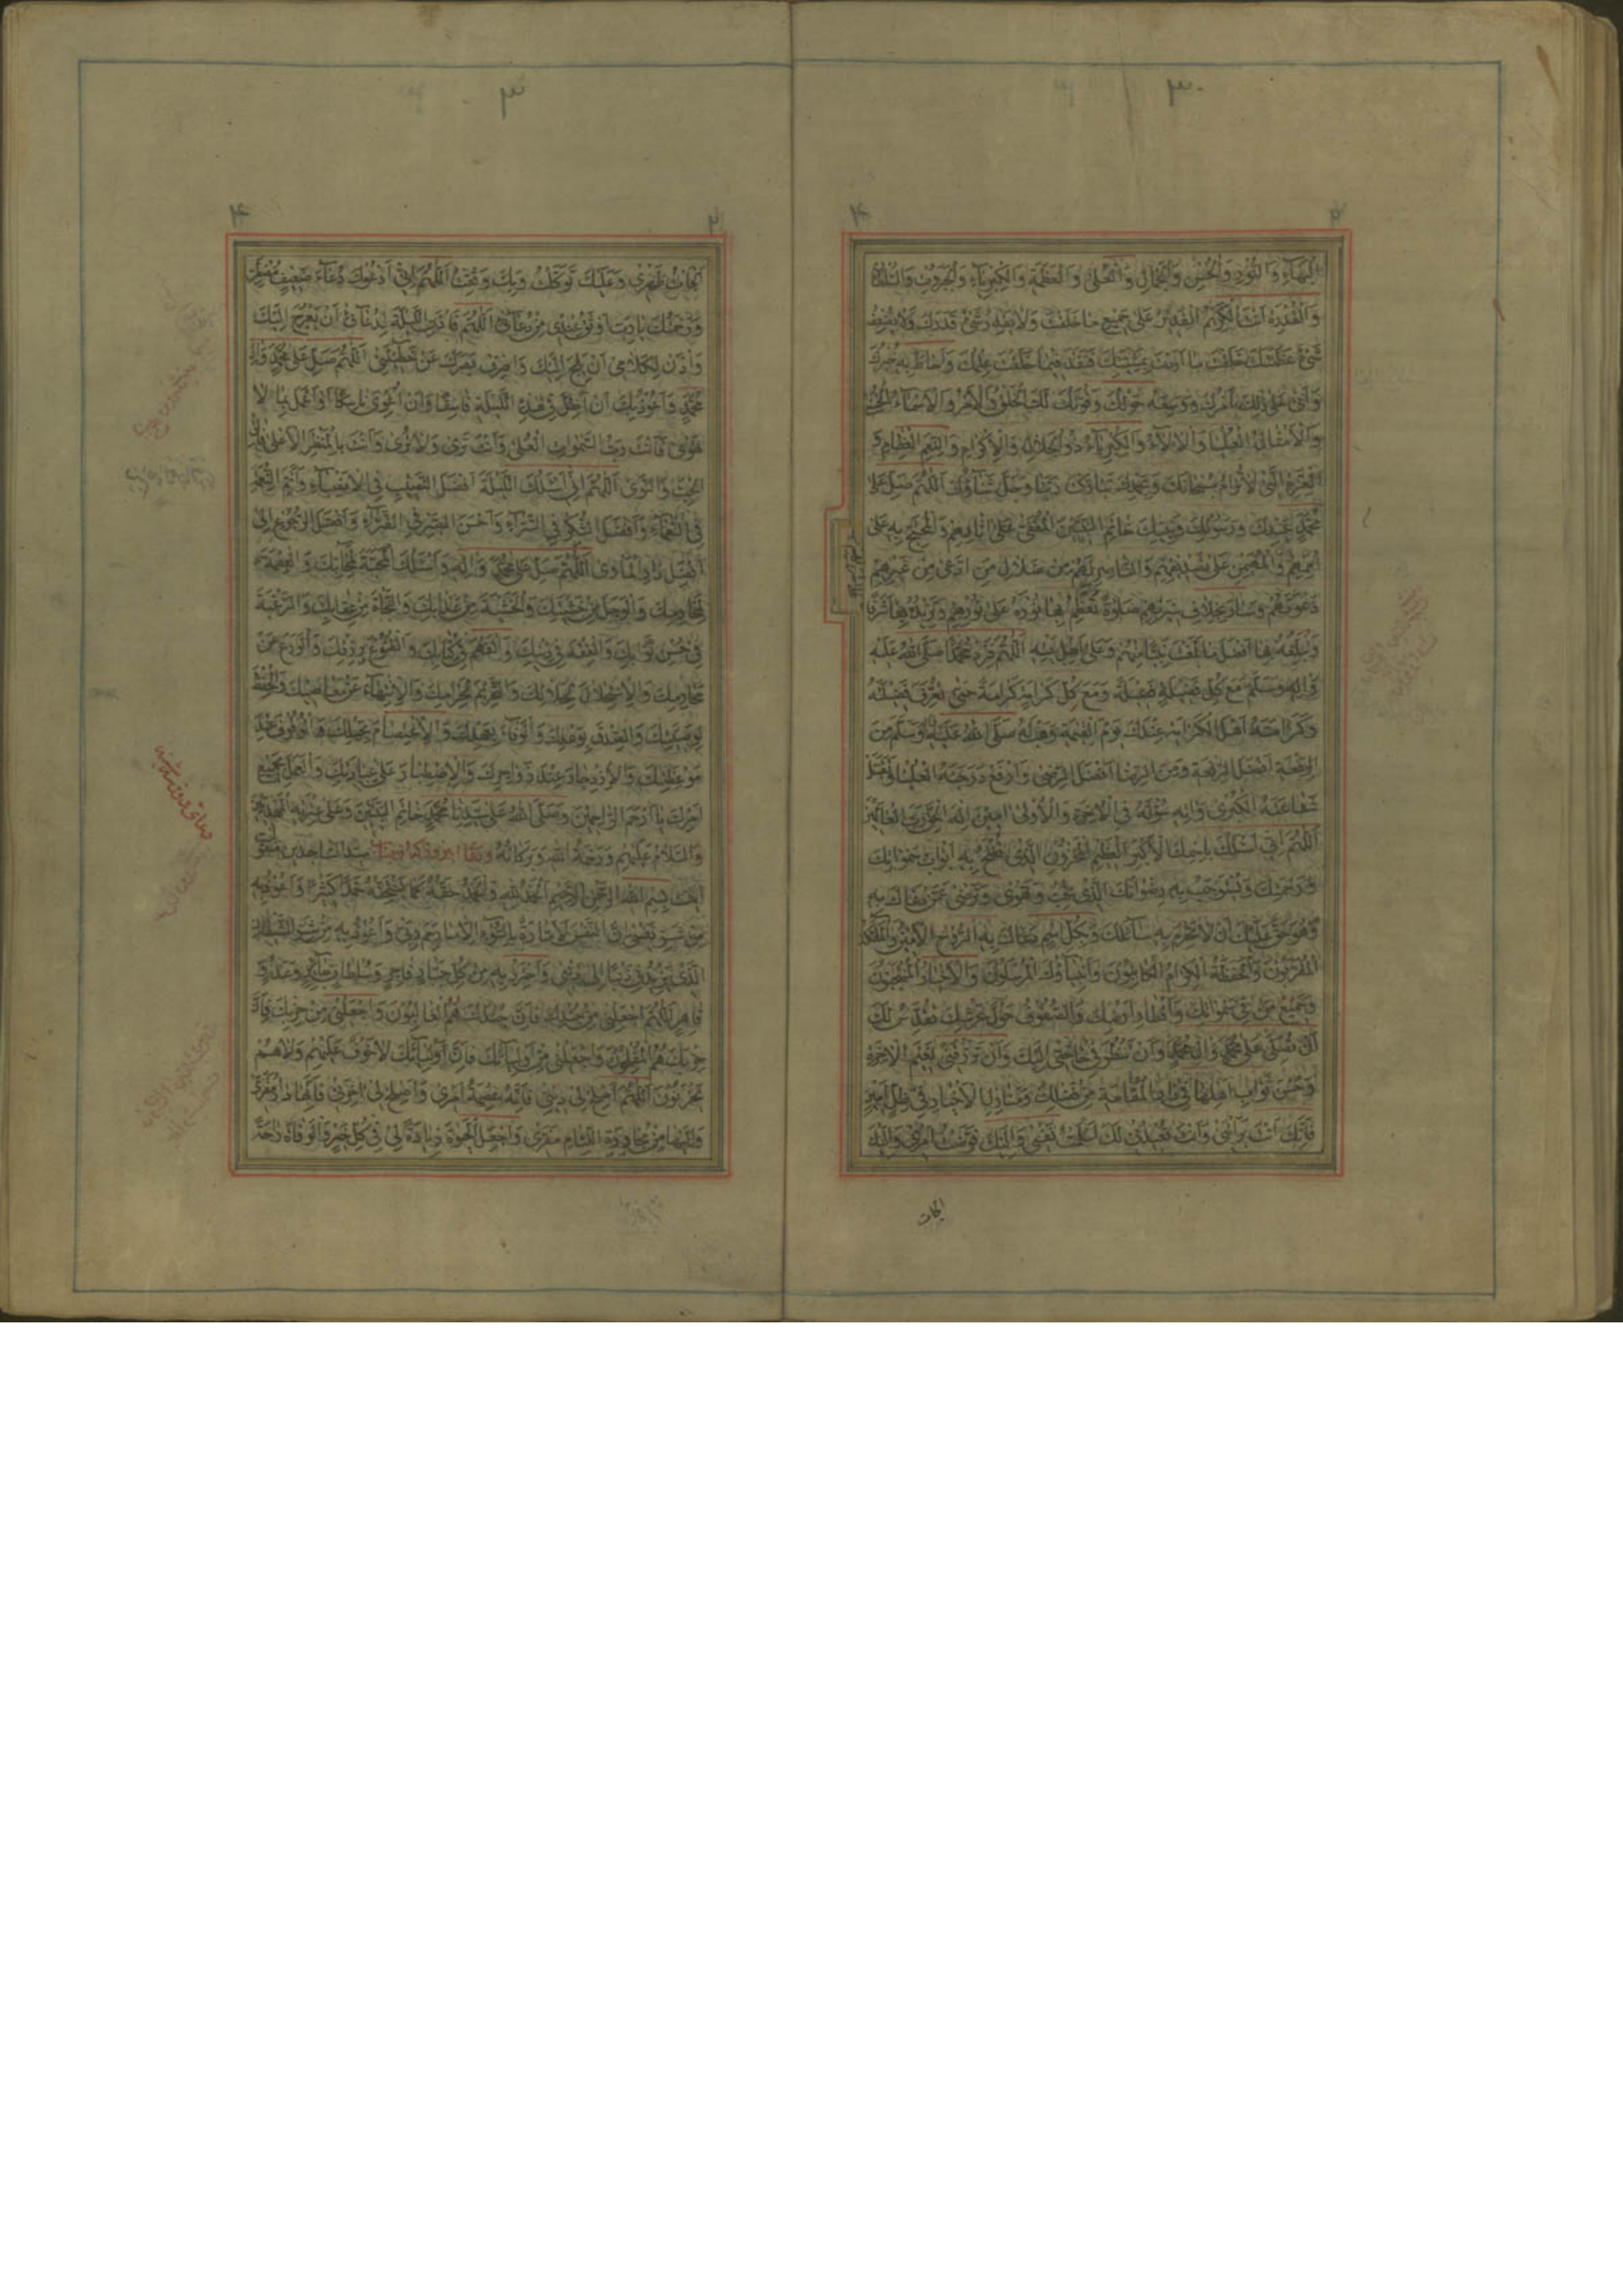 ٣
٢ ۴
البهاء والنور والحسن والجمال والعلى والعظمة والكبرياء والجبروت والسلطان
والقدرة انت الكريم القدير على جميع ما خلقت ولا يقدر شئ قدرك ولا يضعف
شئ عظمتك خلقت ما اردت بمشيتك فنفذ فيما خلقت علمك واحاط به خبرك
واتى على ذلك امرك ووسعه حولك وقوتك لك الخلق والامر والاسماء الحسنى
والامثال العليا والالاء والكبرياء ذو الجلال والاكرام والنعم العظام و
العزة التى لا ترام سبحانك وبحمدك تباركت ربنا وجل ثناؤك اللهم صل على
محمد عبدك ورسولك ونبيك خاتم النبيين المقفى على اثارهم والمحتج به على
اممهم والمهيمن على تصديقهم والناصر لهم من ضلال من ادعى من غيرهم
دعوتهم وسار بخلاف سيرتهم صلوة تعظم بها نوره على نورهم وتزيده بها شرفا
وتبلغه بها افضل ما بلغت نبيا منهم وعلى اهل بيته اللهم فزد محمدا صلى الله عليه
واله وسلم مع كل فضيلة فضيلة ومع كل كرامة كرامة حتى تعرف فضيلته
وكرامته اهل الكرامة عندك يوم القيمة وهب له صلى الله عليه واله وسلم من
الرفعة افضل الرفعة ومن الرضا افضل الرضى وارفع درجته العليا وتقبل
شفاعته الكبرى واته سؤله فى الاخرة والاولى امين اله الحق رب العالمين
اللهم انى اسئلك باسمك الاكبر العظيم المخزون الذى تفتح به ابواب سمواتك
ورحمتك وتستوجب به رضوانك الذى تحب وتهوى وترضى عمن دعاك به
وهو حق عليك ان لا تحرم به سائلك وبكل اسم دعاك به الروح الامين والملئكة
المقربون والحفظة الكرام الكاتبون وانبياؤك المرسلون والاخيار المنتجبون
وجميع من فى سمواتك واقطار ارضك والصفوف حول عرشك تقدس لك
ان تصلى على محمد وال محمد وان تنظر فى حاجتى اليك وان ترزقنى نعيم الاخرة
وحسن ثواب اهلها فى دار المقامة من فضلك ومنازل الاخيار فى ظل امين
فانك انت برأتنى وانت تعيدنى لك اسلمت نفسى واليك فوضت امرى واليك
الجات
٣
٢ ۴
الجات ظهرى وعليك توكلت وبك وثقت اللهم انى ادعوك دعاء ضعيف مضطر
ورحمتك يا رب اوثق عندى من دعائى اللهم فاذن الليلة لدعائى ان يعرج اليك
واذن لكلامى ان يلج اليك واصرف بصرك عن خطيئتى اللهم صل على محمد وال
محمد واعوذ بك ان اضل فى هذه الليلة فاشقى وان اغوى او اعمل بما لا
تهوى فانت رب السموات العلى وانت ترى ولا ترى وانت بالمنظر الاعلى فالق
الحب والنوى اللهم انى اسئلك الليلة افضل النصيب فى الانصباء واتم النعمة
فى النعماء وافضل الشكر فى السراء واحسن الصبر فى الضراء وافضل الرجوع الى
افضل دار الماوى اللهم صل على محمد واله واسئلك المحبة لمحابك والعصمة
لمحارمك والوجل من خشيتك والخشية من عذابك والنجاة من عقابك والرغبة
فى حسن ثوابك والفقه فى دينك والفهم فى كتابك والقنوع برزقك والورع عن
محارمك والاستحلال لحلالك والتحريم لحرامك والانتهاء عن معاصيك والحفظ
لوصيتك والصدق بوعدك والوفاء بعهدك والاعتصام بحبلك والوقوف عند
موعظتك والازدجار عند زواجرك والاصطبار على عبادتك والعمل بجميع
امرك يا ارحم الراحمين وصلى الله على سيدنا محمد خاتم النبيين وعلى عترته المهديين
والسلام عليهم ورحمة الله وبركاته سيد الساجدين
بسم الله الرحمن الرحيم الحمد لله والحمد حقه كما يستحقه حمدا كثيرا واعوذ به
من شر نفسى ان النفس لامارة بالسوء الا ما رحم ربى واعوذ به من شر الشيطان
الذى يزيدنى ذنبا الى ذنبى واحترز به من كل جبار فاجر وسلطان جائر وعدو
قاهر اللهم اجعلنى من جندك فان جندك هم الغالبون واجعلنى من حزبك فان
حزبك هم المفلحون واجعلنى من اوليائك فان اوليائك لا خوف عليهم ولا هم
يحزنون اللهم اصلح لى دينى فانه عصمة امرى واصلح لى اخرتى فانها دار مقرى
واليها من مجاورة اللئام مفرى واجعل الحيوة زيادة لى فى كل خير والوفاة راحة